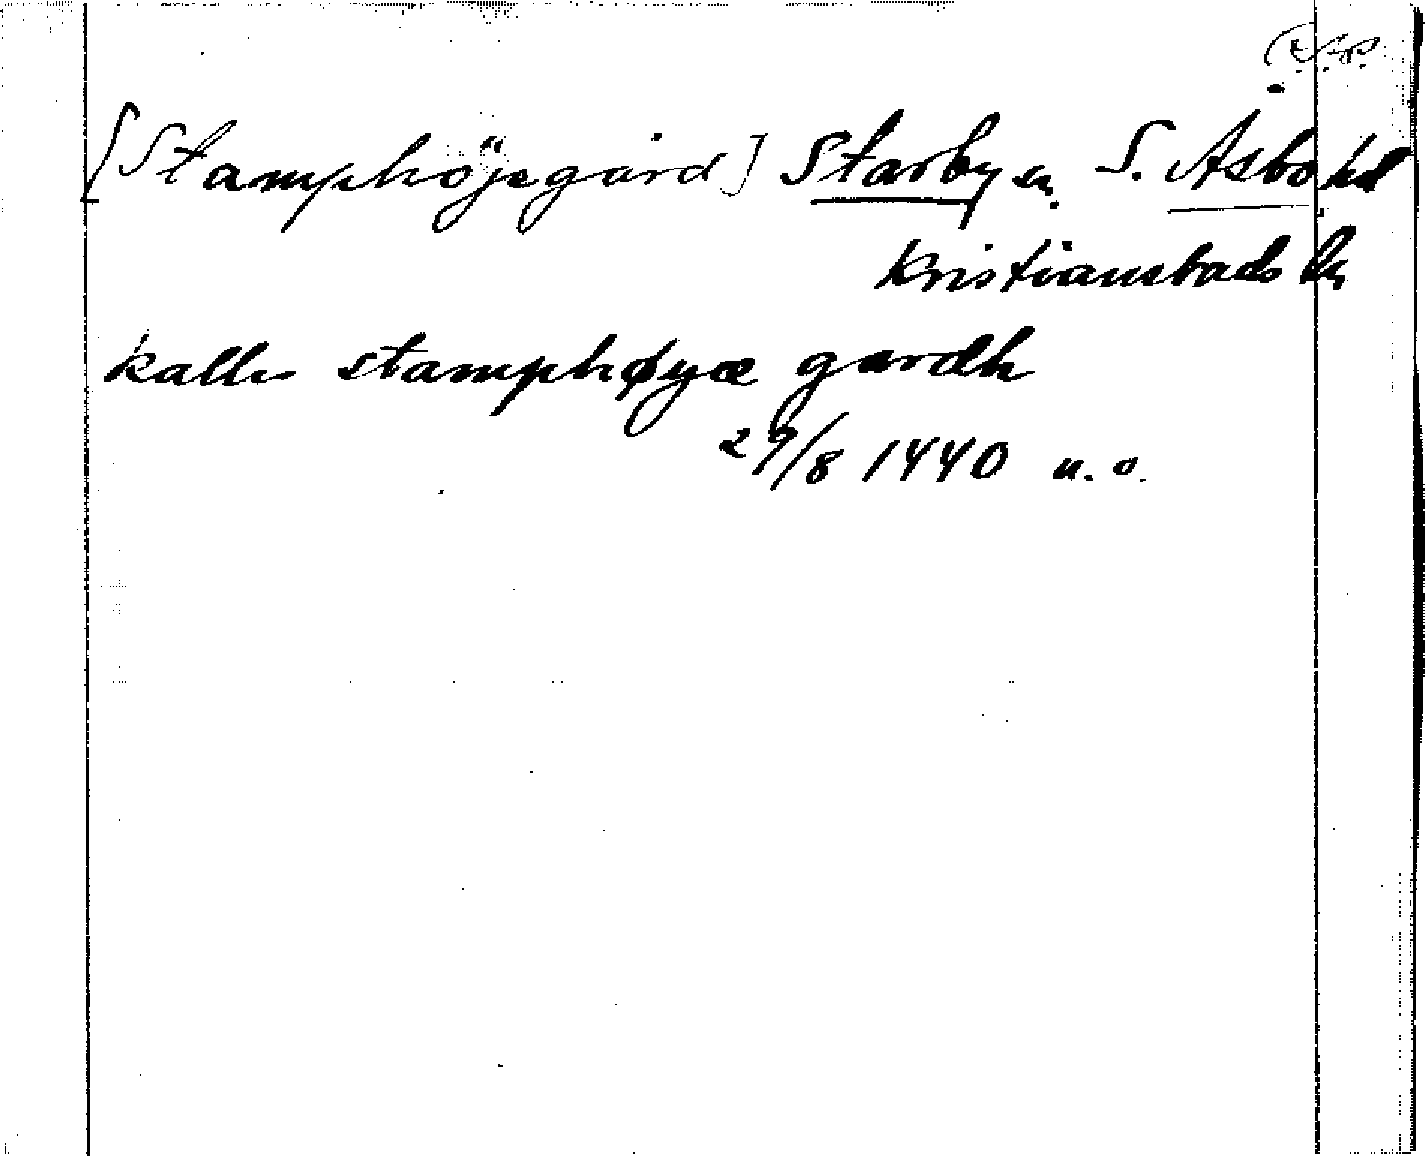 [Stamphöjegård] Starby sn. S. Åsbo hd
Kristianstads län
kalles stamphøyæ gardh
29/8 1440 u. o.